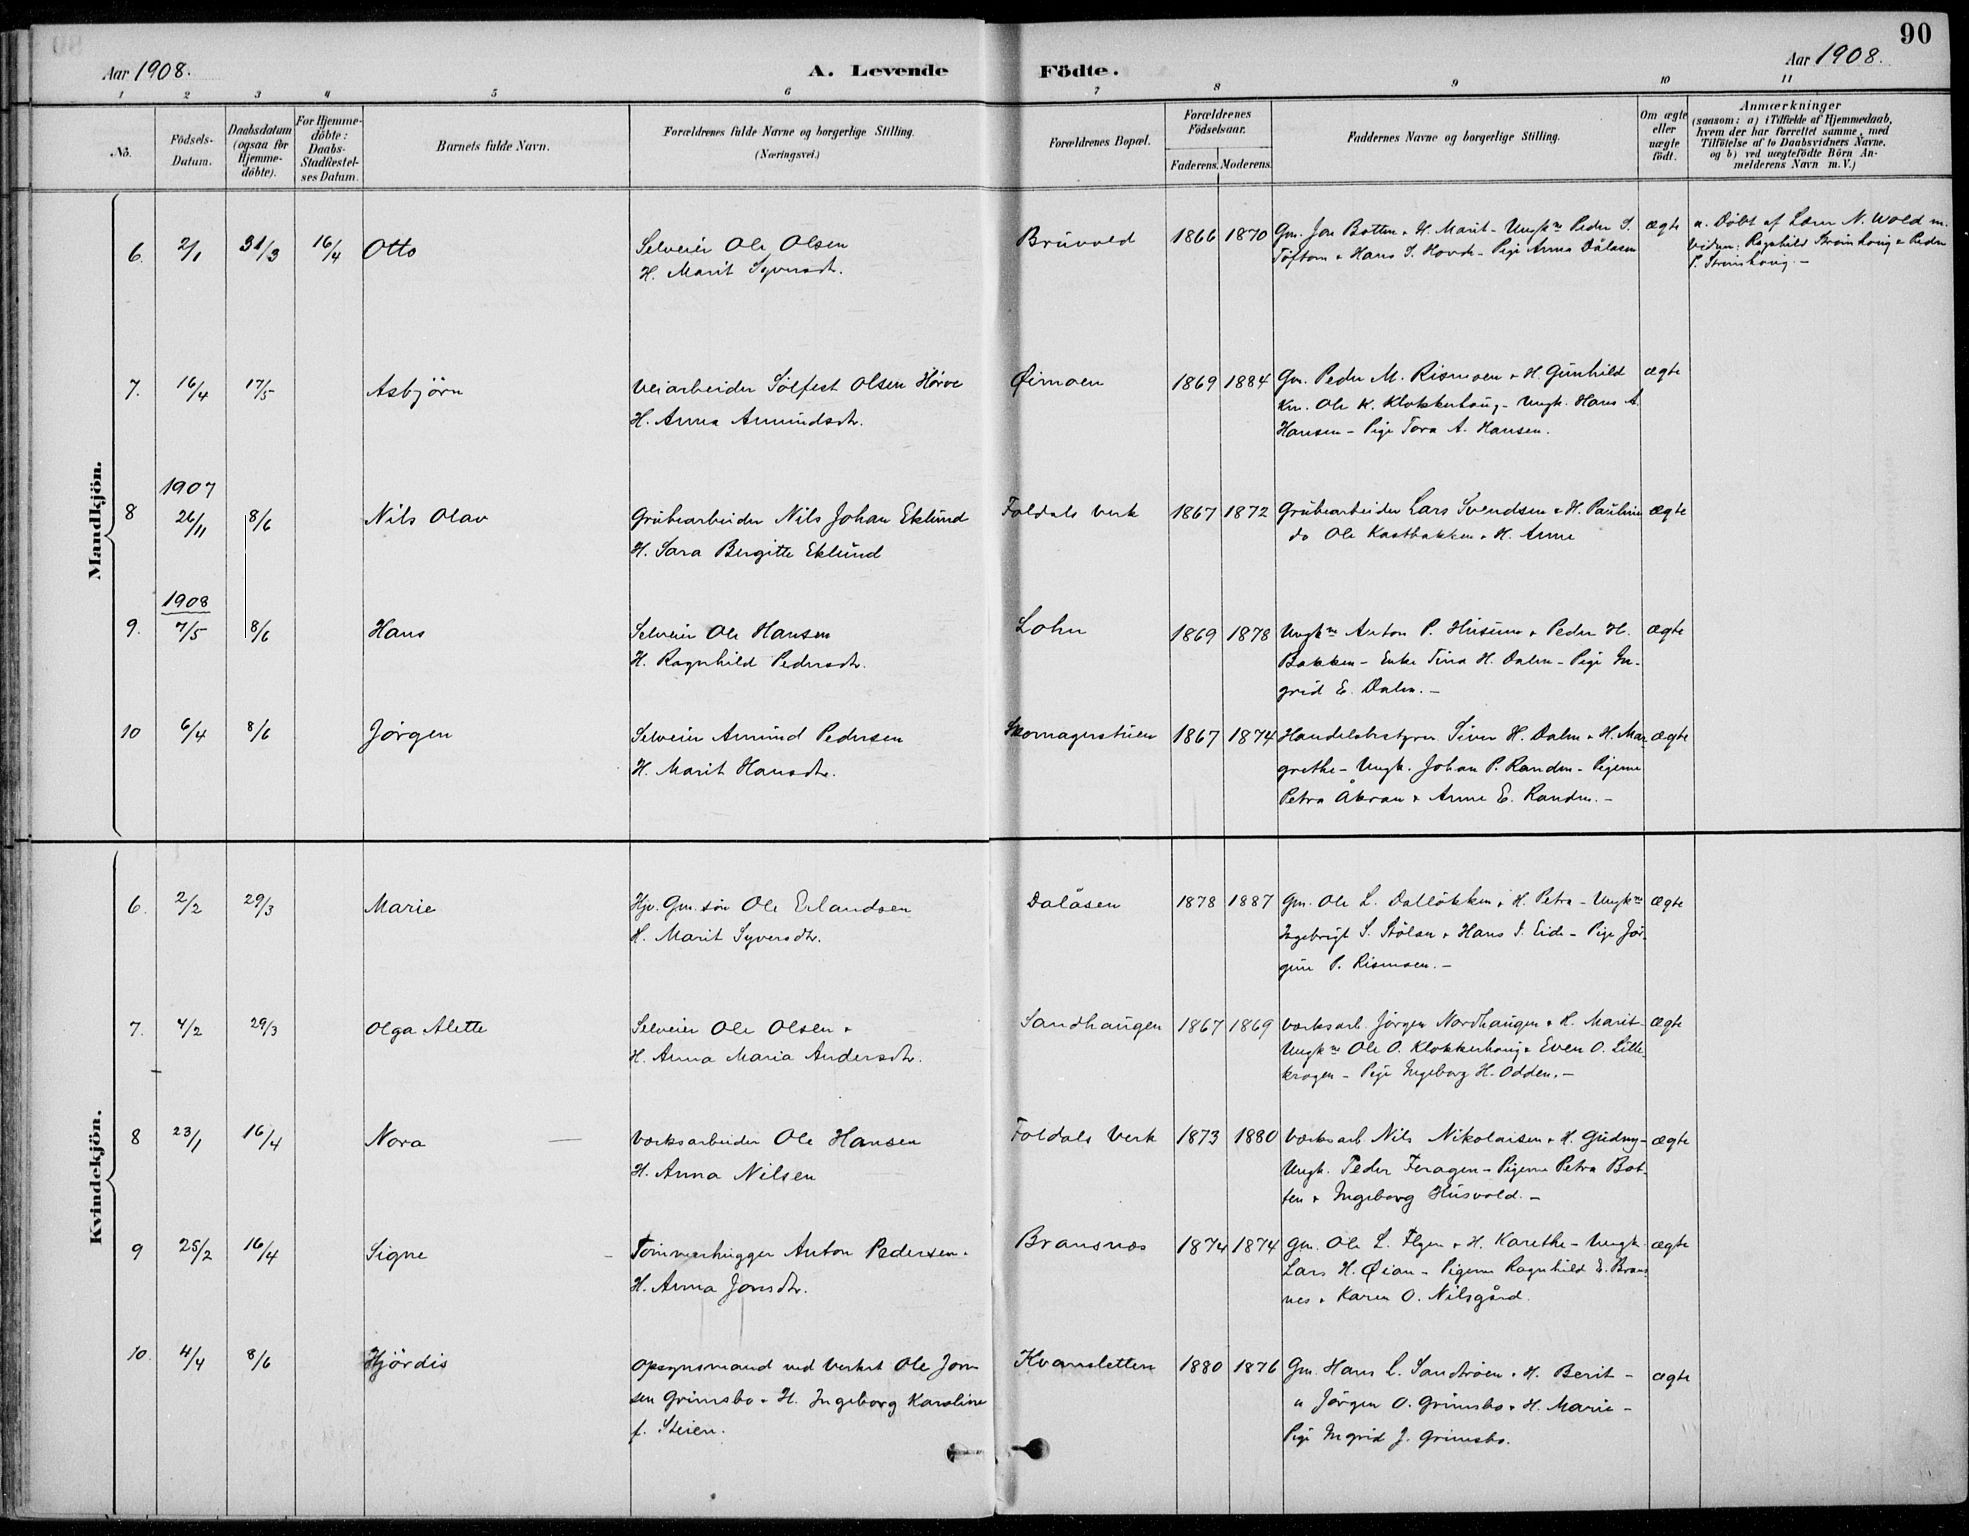 90
Aar 1908. A. Levende Födte. Aar 1908.
1 2 3 4 5 6 7 8 9 10 11
No.
Födsels-Datum.
Daabsdatum (ogsaa for Hjemme-döbte).
For Hjemme-döbte: Daabs-Stadfestel-ses Datum.
Barnets fulde Navn.
Forældrenes fulde Navne og borgerlige Stilling.
(Næringsvei.)
Forældrenes Bopæl.
Forældrenes Födselsaar.
Faderens. Moderens.
Faddernes Navne og borgerlige Stilling.
Om ægte eller uægte födt.
Anmærkninger
(saasom: a) i Tilfælde af Hjemmedaab,
hvem der har forrettet samme, med
Tilföielse af to Daabsvidners Navne,
og b) ved uægtefödte Börn An-
melderens Navn m. V.)
Mandkjön.
6. 2/1 31/3 16/4 Otto Selveier Ole Olsen Brunvold 1866 1870 Gm. Jon Botten & H. Marit - Ungkm Peder S. ægte a. Döbt af Lærer N. Wold m.
H. Marit Syversdtr. Töftom & Hans S. Hovde - Pige Anna Dålåsen vidner: Ragnhild Strömhaug & Peder
P. Strömhaug. -
7. 16/4 17/5 Asbjörn Veiarbeider Sölfest Olsen Hörve Øimoen 1869 1884 Gm. Peder M. Rismoen & H. Gunhild ægte
H. Anna Amundsdtr. Km. Ole K. Klokkerhaug - Ungk. Hans A.
Hansen - Pige Tora A. Hansen.
1907
8 26/11 8/6 Nils Olav Grubearbeider Nils Johan Eklund Foldals Verk 1867 1872 Grubearbeider Lars Svendsen & H. Pauline ægte
H. Sara Bergitte Eklund do Ole Kastbakken & H. Anne
1908
9. 7/5 8/6 Hans Selveier Ole Hansen Lohn 1869 1878 Ungkm Anton P. Husum & Peder H. ægte
H. Ragnhild Pedersdtr. Bakken - Enke Tina H. Dalen - Pige In-
grid E. Dalen. -
10 6/4 8/6 Jörgen Selveier Amund Pedersen Skomagerstuen 1867 1874 Handelsbestyrer Siver H. Dalen & H. Mar- ægte
H. Marit Hansdtr. grethe - Ungk. Johan P. Randen - Pigerne
Petra Åkran & Anne E. Randen. -
Kvindekjön.
6. 2/2 29/3 Marie Hjv. Gm. sön Ole Erlandsen Dalåsen 1878 1887 Gm. Ole L. Dallökken & H. Petra - Ungkm ægte
H. Marit Syversdtr. Ingebrigt S. Stölan & Hans S. Eide - Pige Jör-
gine P. Rismoen. -
7. 4/2 29/3 Olga Alette Selveier Ole Olsen & Sandhaugen 1867 1869 Værksarb. Jörgen Nordhaugen & H. Marit - ægte
H. Anna Maria Andersdtr. Ungkm Ole O. Klokkerhaug & Even O. Lille-
krogen - Pige Ingeborg H. Odden. -
8 23/1 16/4 Nora Værksarbeider Ole Hansen Foldals Verk 1873 1880 Værksarb Nils Nikolaisen & H. Gudny - ægte
H. Anna Nilsen Ungk. Peder Feragen - Pigerne Petra Bot-
ten & Ingeborg Husvold. -
9 25/2 16/4 Signe Tömmerhugger Anton Pedersen & Bransnæs 1874 1874 Gm. Ole L. Elgen & H. Karethe - Ungk. ægte
H. Anna Jonsdtr. Lars H. Øian - Pigerne Ragnhild E. Brans-
nes & Karen O. Nilsgård.
10. 4/4 8/6 Hjördis Opsynsmand ved Verket Ole Jörn- Kvarnsletten 1880 1876 Gm. Hans L. Sandtröen & H. Berit - ægte
sen Grimsbo & H. Ingeborg Karoline " Jörgen O. Grimsbo & H. Marie -
f. Steien. Pige Ingrid J. Grimsbo.